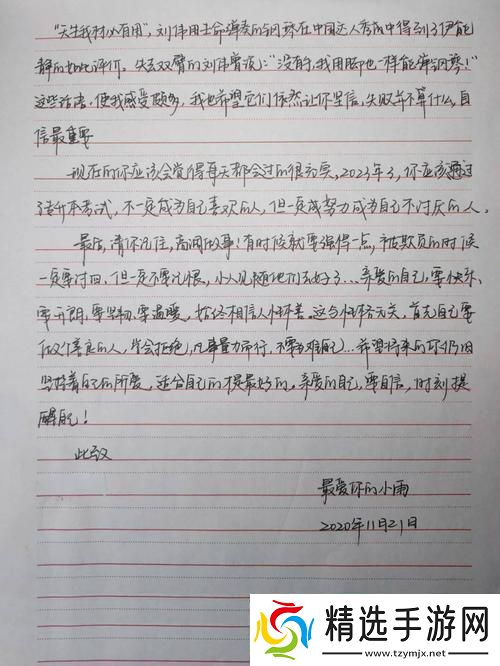 “天生我材必有用”，刘伟用生命弹奏的钢琴在中国达人秀成中得到了伊能
静的如此评价。失去双臂的刘伟曾说:“没有手,我用脚也一样能弹钢琴!”
这些话语,使我感受颇多,我也希望它们依然让你坚信,失败并不算什么,自
信最重要
现在的你应该会觉得每天都会过的很充实,2023年了,你应该通过
专升本考试,不一定成为自己喜欢的人,但一定成努力成为自己不讨厌的人。
最后,请你记住,高调做事!有时候就要强得一点,被欺负的时候
一定要讨回,但一定不要记恨,小人见随他们去好了…亲爱的自己,要快乐、
要开朗、要坚韧、要温暖,始终相信人性本善。这与性格无关,首先自己要
做个善良的人,学会拒绝,凡事量力而行,不要为难自己…希望将来的你仍旧
坚持着自己的所爱,适合自己的才是最好的。亲爱的自己,要自信,时刻提
醒自己!
此致
最爱你的小雨
2020年11月21日
精选手游网
www.tzymjx.net